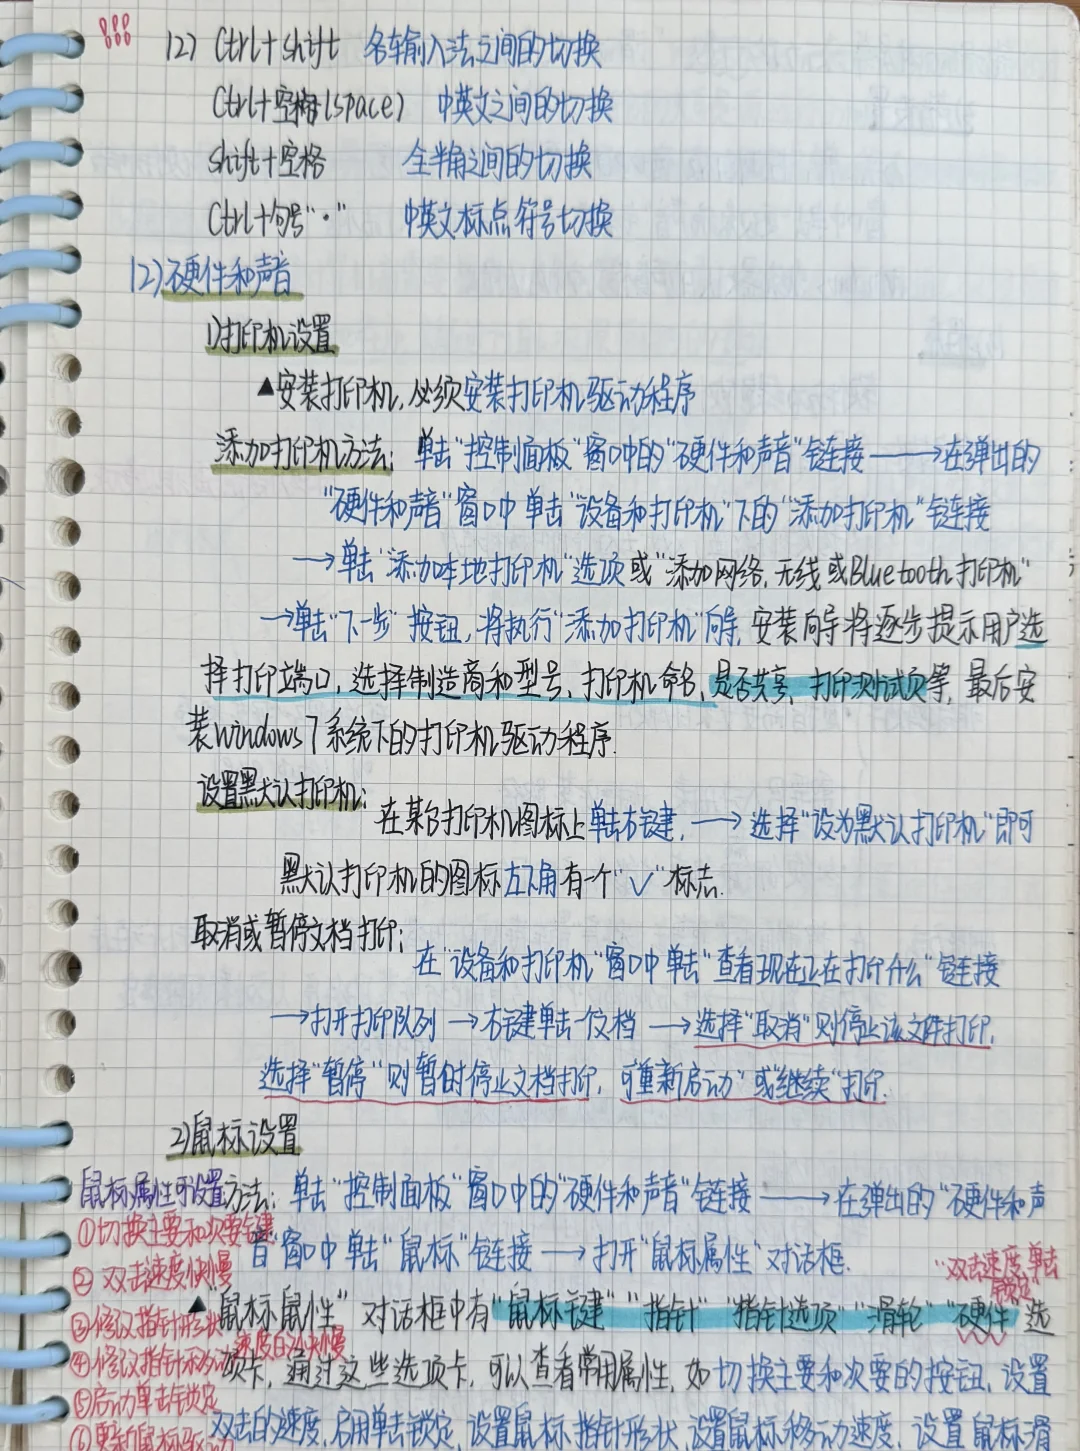 12) Ctrl+shift 各车输入法之间的切换
Ctrl+空格(space) 中英文之间的切换
shift+空格 全半角之间的切换
Ctrl+句号"." 中英文标点符号切换
12)硬件和声音
1)打印机设置
▲安装打印机,必须安装打印机驱动程序
添加打印机方法: 单击"控制面板"窗口中的"硬件和声音"链接→在弹出的
"硬件和声音"窗口中单击"设备和打印机"下的"添加打印机"链接
→单击"添加本地打印机"选项或"添加网络,无线或Bluetooth打印机"
→单击"下一步"按钮,将执行"添加打印机"向导,安装向导将逐步提示用户选
择打印端口,选择制造商和型号、打印机命名、是否共享、打印测试页等,最后安
装windows 7系统下的打印机驱动程序.
设置默认打印机:
在某台打印机图标上单击右键,→选择"设为默认打印机"即可
默认打印机的图标左下角有一个"✓"标志.
取消或暂停文档打印:
在"设备和打印机"窗口中单击"查看现在正在打印什么"链接
→打开打印队列→右键单击一份文档→选择"取消"则停止该文件打印,
选择"暂停"则暂时停止文档打印,可"重新启动"或"继续"打印.
2)鼠标设置
鼠标属性可设置方法: 单击"控制面板"窗口中的"硬件和声音"链接→在弹出的"硬件和声
①切换主要和次要键
音"窗口中单击"鼠标"链接→打开"鼠标属性"对话框.
双击速度,单击
锁定
②双击速度快慢
▲"鼠标属性"对话框中有"鼠标键""指针""指针选项""滑轮""硬件"选
③修改指针形状
④修改指针移动
速度的快慢
项卡,通过这些选项卡,可以查看常用属性,如切换主要和次要的按钮,设置
⑤启动单击锁定
双击的速度,启用单击锁定,设置鼠标指针形状,设置鼠标移动速度,设置鼠标滑
⑥更新鼠标驱动